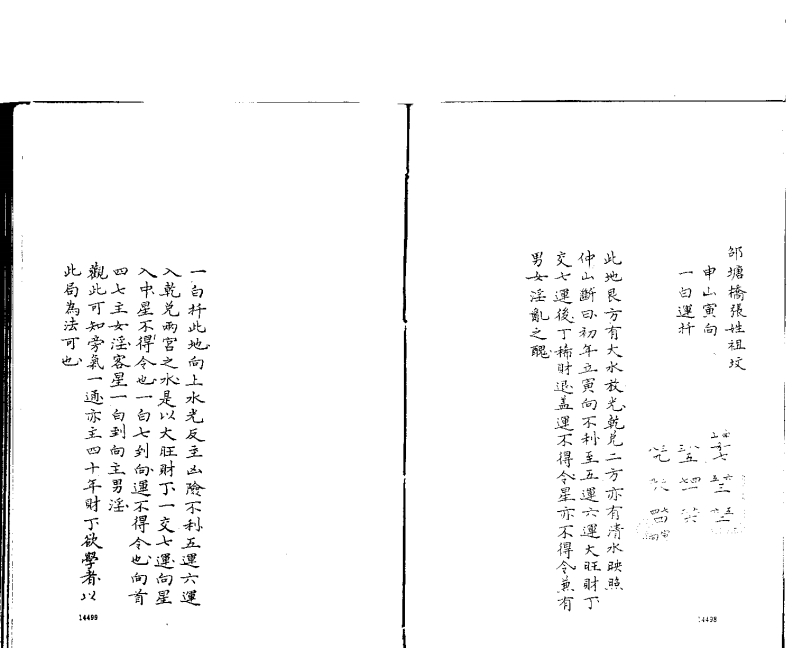 邰塘橋張姓祖坟
申山寅向
一白運扦
此地艮方有大水放光乾兑二方亦有清水映照
仲山斷曰初年立寅向不利至五運六運大旺財丁
交七運後丁稀財退盖運不得令星亦不得令兼有
男女淫亂之醜
14498
一白扦此地向上水光反主凶險不利五運六運
入乾兑兩宮之水是以大旺財丁一交七運向星
入中星不得令也一白七到向運不得令也向首
四七主女淫客星一白到向主男淫
觀此可知旁氣一通亦主四十年財丁欲學者以
此局為法可也
14499